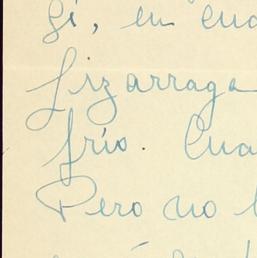 gi, en cua
Lizarraga
frío. Cua
Pero no l